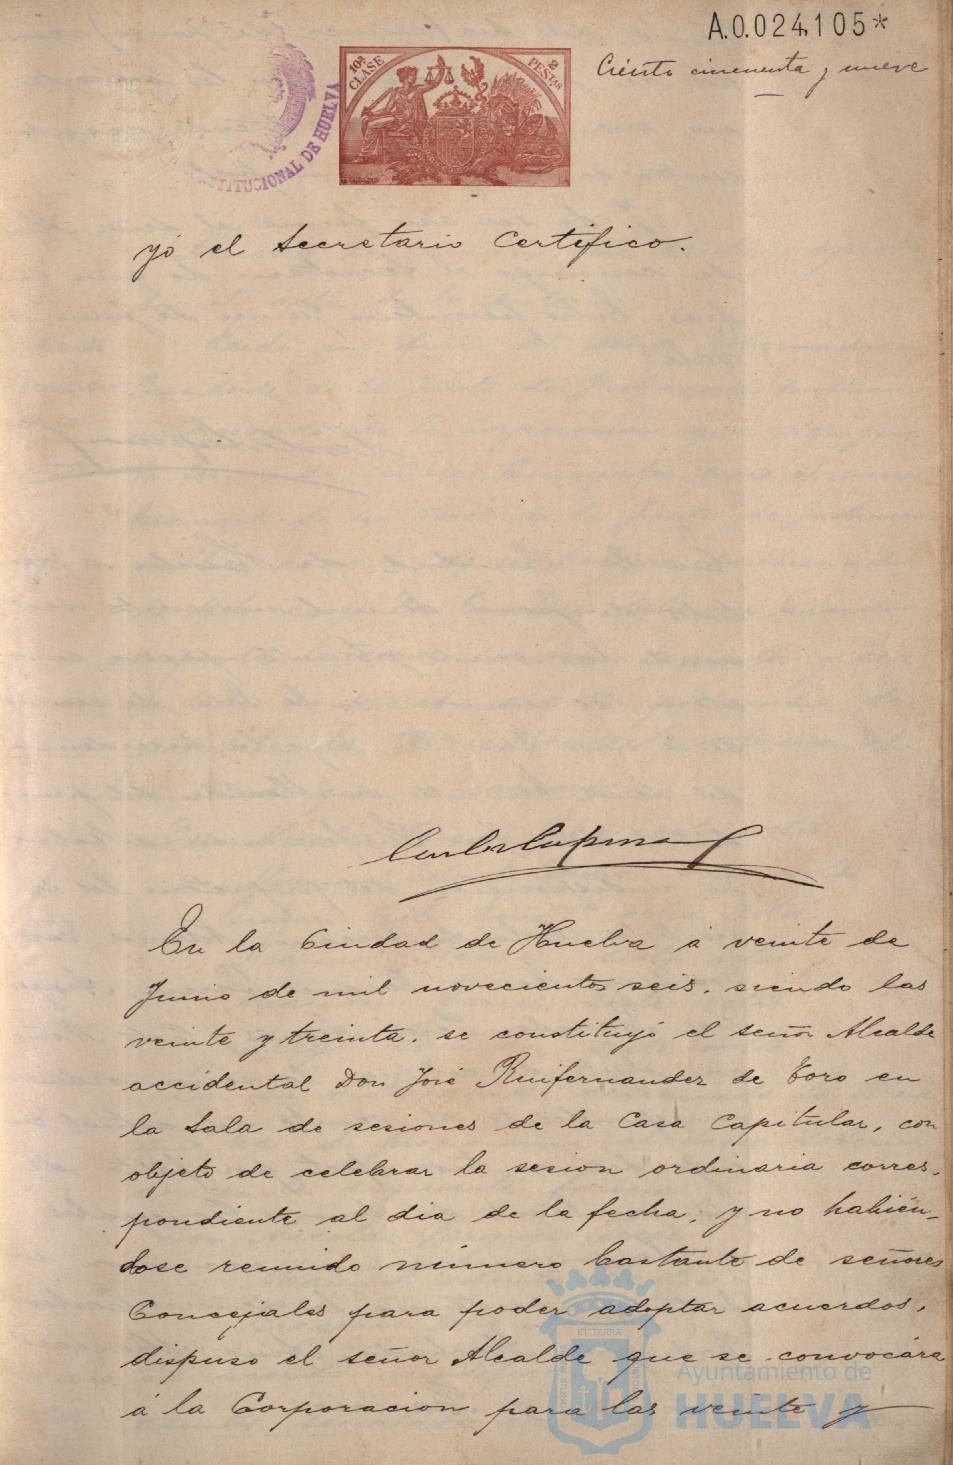 A.0.024,105*
Ciento cincuenta y nueve
10ª CLASE
2 PESTAS
STITUCIONAL DE HUELVA
yó el Secretario Certifico.
En la Ciudad de Huelva á veinte de
Junio de mil novecientos seis, siendo las
veinte y treinta, se constituyó el señor Alcalde
accidental Don José Ruifernandez de Toro en
la Sala de sesiones de la Casa Capitular, con
objeto de celebrar la sesion ordinaria corres-
pondiente al dia de la fecha; y no habién-
dose reunido número bastante de señores
Concejales para poder adoptar acuerdos,
dispuso el señor Alcalde que se convocára
á la Corporacion para las veinte y
Ayuntamiento de
HUELVA